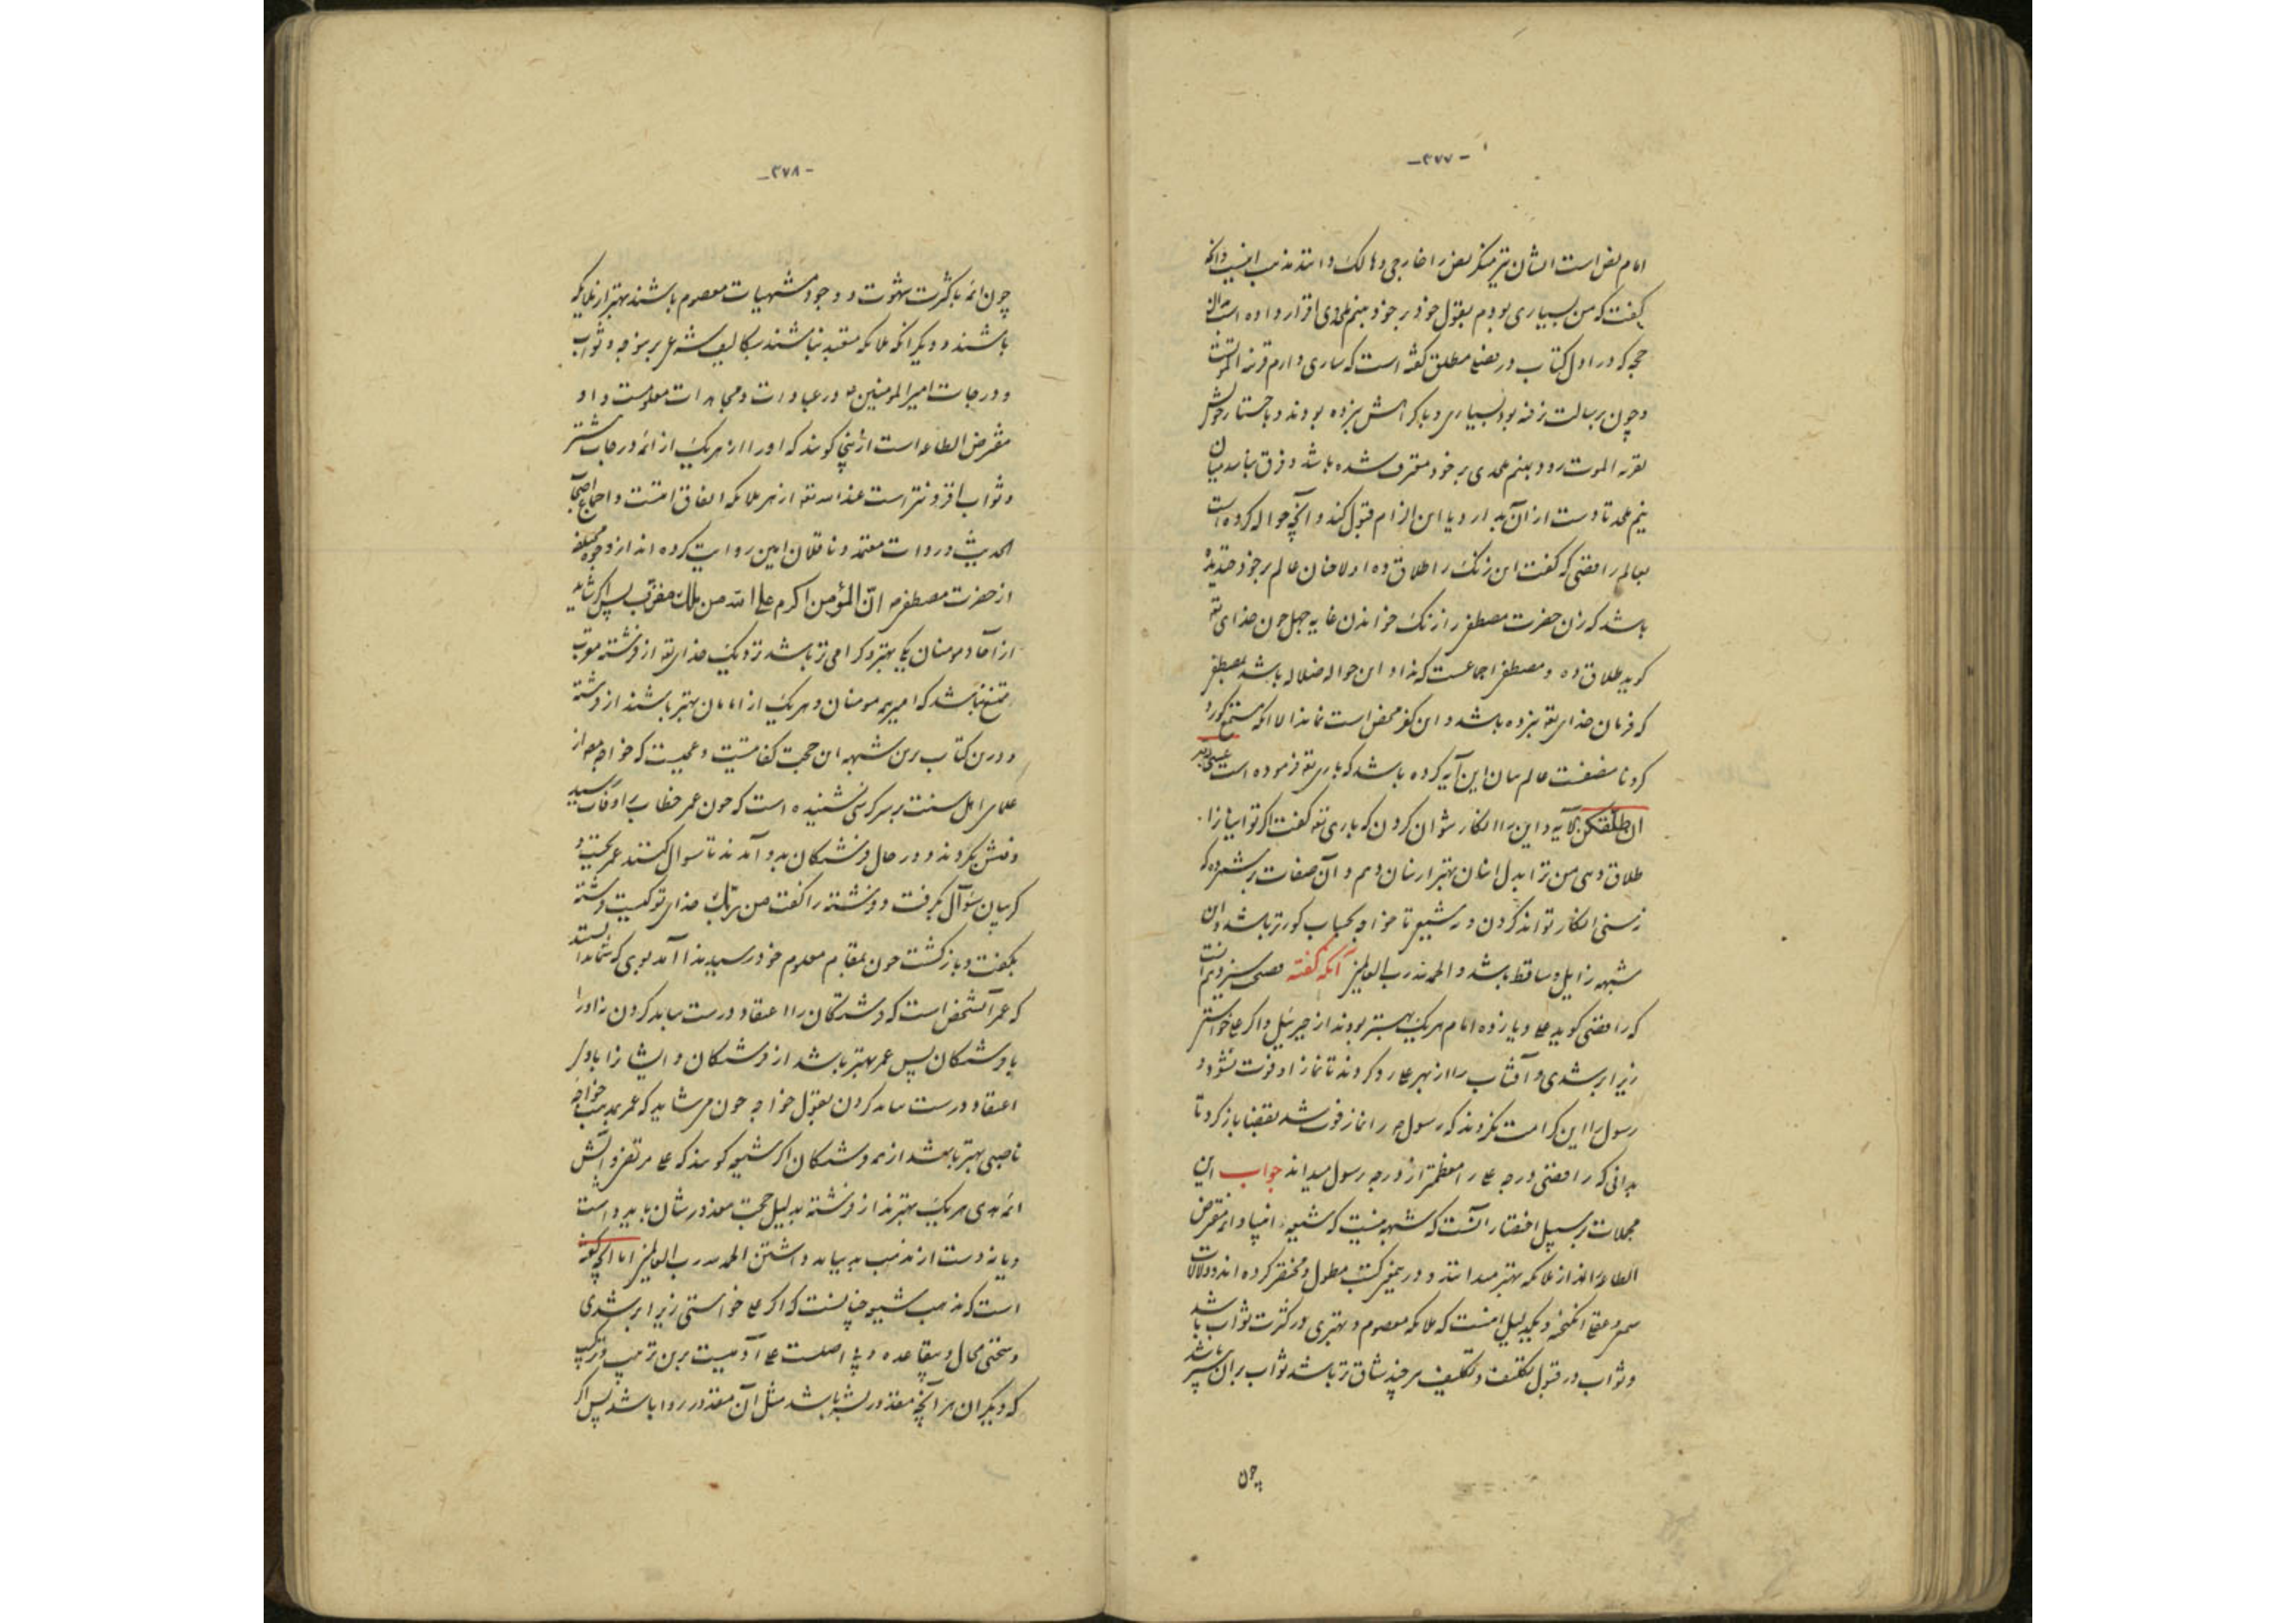 -۳۷۷-
امام نص است ایشان نیز منکر نص را خارجی و هالک دانند مذهب اینست و آنکه
گفت که من بسیاری بودم بقول خود بر خود بنیم ملحدی اقرار داده است
که در اول کتاب در بعضی مطلق گفته است که ساری دارم
و چون برسالت رفته بود بساری و با کراهش نبرده بودند و باختیار خویش
بقریه الموت رود بنیم ملحدی بر خود معترف شده باشد و فرق نباشد میان
نیم ملحد تا دست از آن بدارد یا این الزام قبول کند و آنچه حواله کرده است
بعالم رافضی که گفت این زنک را طلاق ده اولا خان عالم بر خود خندیده
باشد که زن حضرت مصطفی را زنک خواندن غایه جهل چون خدای تع
گوید طلاق ده و مصطفی اجماعست که نداد این حواله ضلاله باشد بمصطفی
که فرمان خدای تع نبرده باشد و این کفر محض است نماند الا آنکه
کرد تا منفعت عالم بیان این آیه کرده باشد که باری تع فرموده است عسی ربه
ان طلقکن الآیه و این را انکار نتوان کردن که باری تع گفت اگر تو اینان را
طلاق دهی من ترا بدل اینان بهتر از اینان دهم و آن صفات بر شمرده که
نه سنی انکار تواند کردن و نه شیعی تا خواجه بحساب کورتر باشد و این
شبهه زایل و ساقط باشد و الحمد لله رب العالمین آنکه گفته فضیحت سیزدهم آنست
که رافضی گوید علی و یازده امام هر یک بهتر بودند از جبرئیل و اگر علی خواستی
زیر ابر شدی و آفتاب را از بهر علی رد کردند تا نماز از او فوت نشود و
رسول را این کرامت نکردند که رسول را نماز فوت شد بقضا باز کرد تا
بدانی که رافضی درجه علی را معظم‌تر از درجه رسول میداند جواب این
مجملات بر سبیل اختصار آنست که شبهه نیست که شیعه انبیا و ائمه مفترض
الطاعه را از ملائکه بهتر میدانند و در همه کتب مطول و مختصر کرده‌اند و دلالات
سمع و عقلی انگیخته و یک دلیل اینست که ملائکه معصوم و بهتری در کثرت ثواب باشد
و ثواب در قبول تکلیف و تکلیف هر چند شاق‌تر باشد ثواب بر آن بیشتر باشد
چون
-۳۷۸-
چون ائمه با کثرت شهوت و وجود مشتهیات معصوم باشند بهتر از ملائکه
باشند و دیگر آنکه ملائکه متعبد نباشند بتکالیف شرعی برین وجه و ثواب
و درجات امیر المومنین در عبادات و مجاهدات معلومست و او
مفترض الطاعه است از اینجا گویند که او را از هر یک از ائمه درجات بیشتر
و ثواب افزونتر است عند الله تع از هر ملائکه اتفاق امتست و اجماع اصحاب
الحدیث و روات معتمد و ناقلان امین روایت کرده‌اند از وجوه مختلفه
از حضرت مصطفی انّ المؤمن اکرم علی الله من ملک مقرّب پس اگر شاید
از آحاد مومنان یکی بهتر و گرامی‌تر باشد نزدیک خدای تع از فرشته مقرب
ممتنع نباشد که امیر همه مومنان و هر یک از امامان بهتر باشند از فرشته
و درین کتاب برین شبهه این حجت کفایتست و عجبست که خواجه از
علمای اهل سنت بر سر کرسی نشنیده است که چون عمر خطاب را وفات رسید
و دفنش بکردند و در حال فرشتگان بدو آمدند تا سوال کنند عمر بجست و
گریبان سؤال بگرفت و فرشته را گفت من ربّک خدای تو کیست فرشته
بگفت و باز گشت چون بمقام معلوم خود رسید ندا آمد بوی که شما ندانستید
که عمر آن شخص است که فرشتگان را اعتقاد درست بباید کردن نه او را
با فرشتگان پس عمر بهتر باشد از فرشتگان و ایشان را باو
اعتقاد درست بباید کردن بقول خواجه چون می شاید که عمر بمذهب خواجه
ناصبی بهتر باشد از همه فرشتگان اگر شیعه گویند که علی مرتضی و آلش
ائمه هدی هر یک بهترند از فرشته بدلیل حجت معذورشان باید داشت
و یا نه دست از مذهب بد بباید داشتن الحمد لله رب العالمین اما آنچه گفته
است که مذهب شیعه چنانست که اگر علی خواستی زیر ابر شدی
و سخنی محال و بیقاعده و بی اصلست علی آدمیست برین ترتیب و ترکیب
که دیگران هر آنچه مقدور بشر باشد مثل آن مقدور روا باشد پس اگر